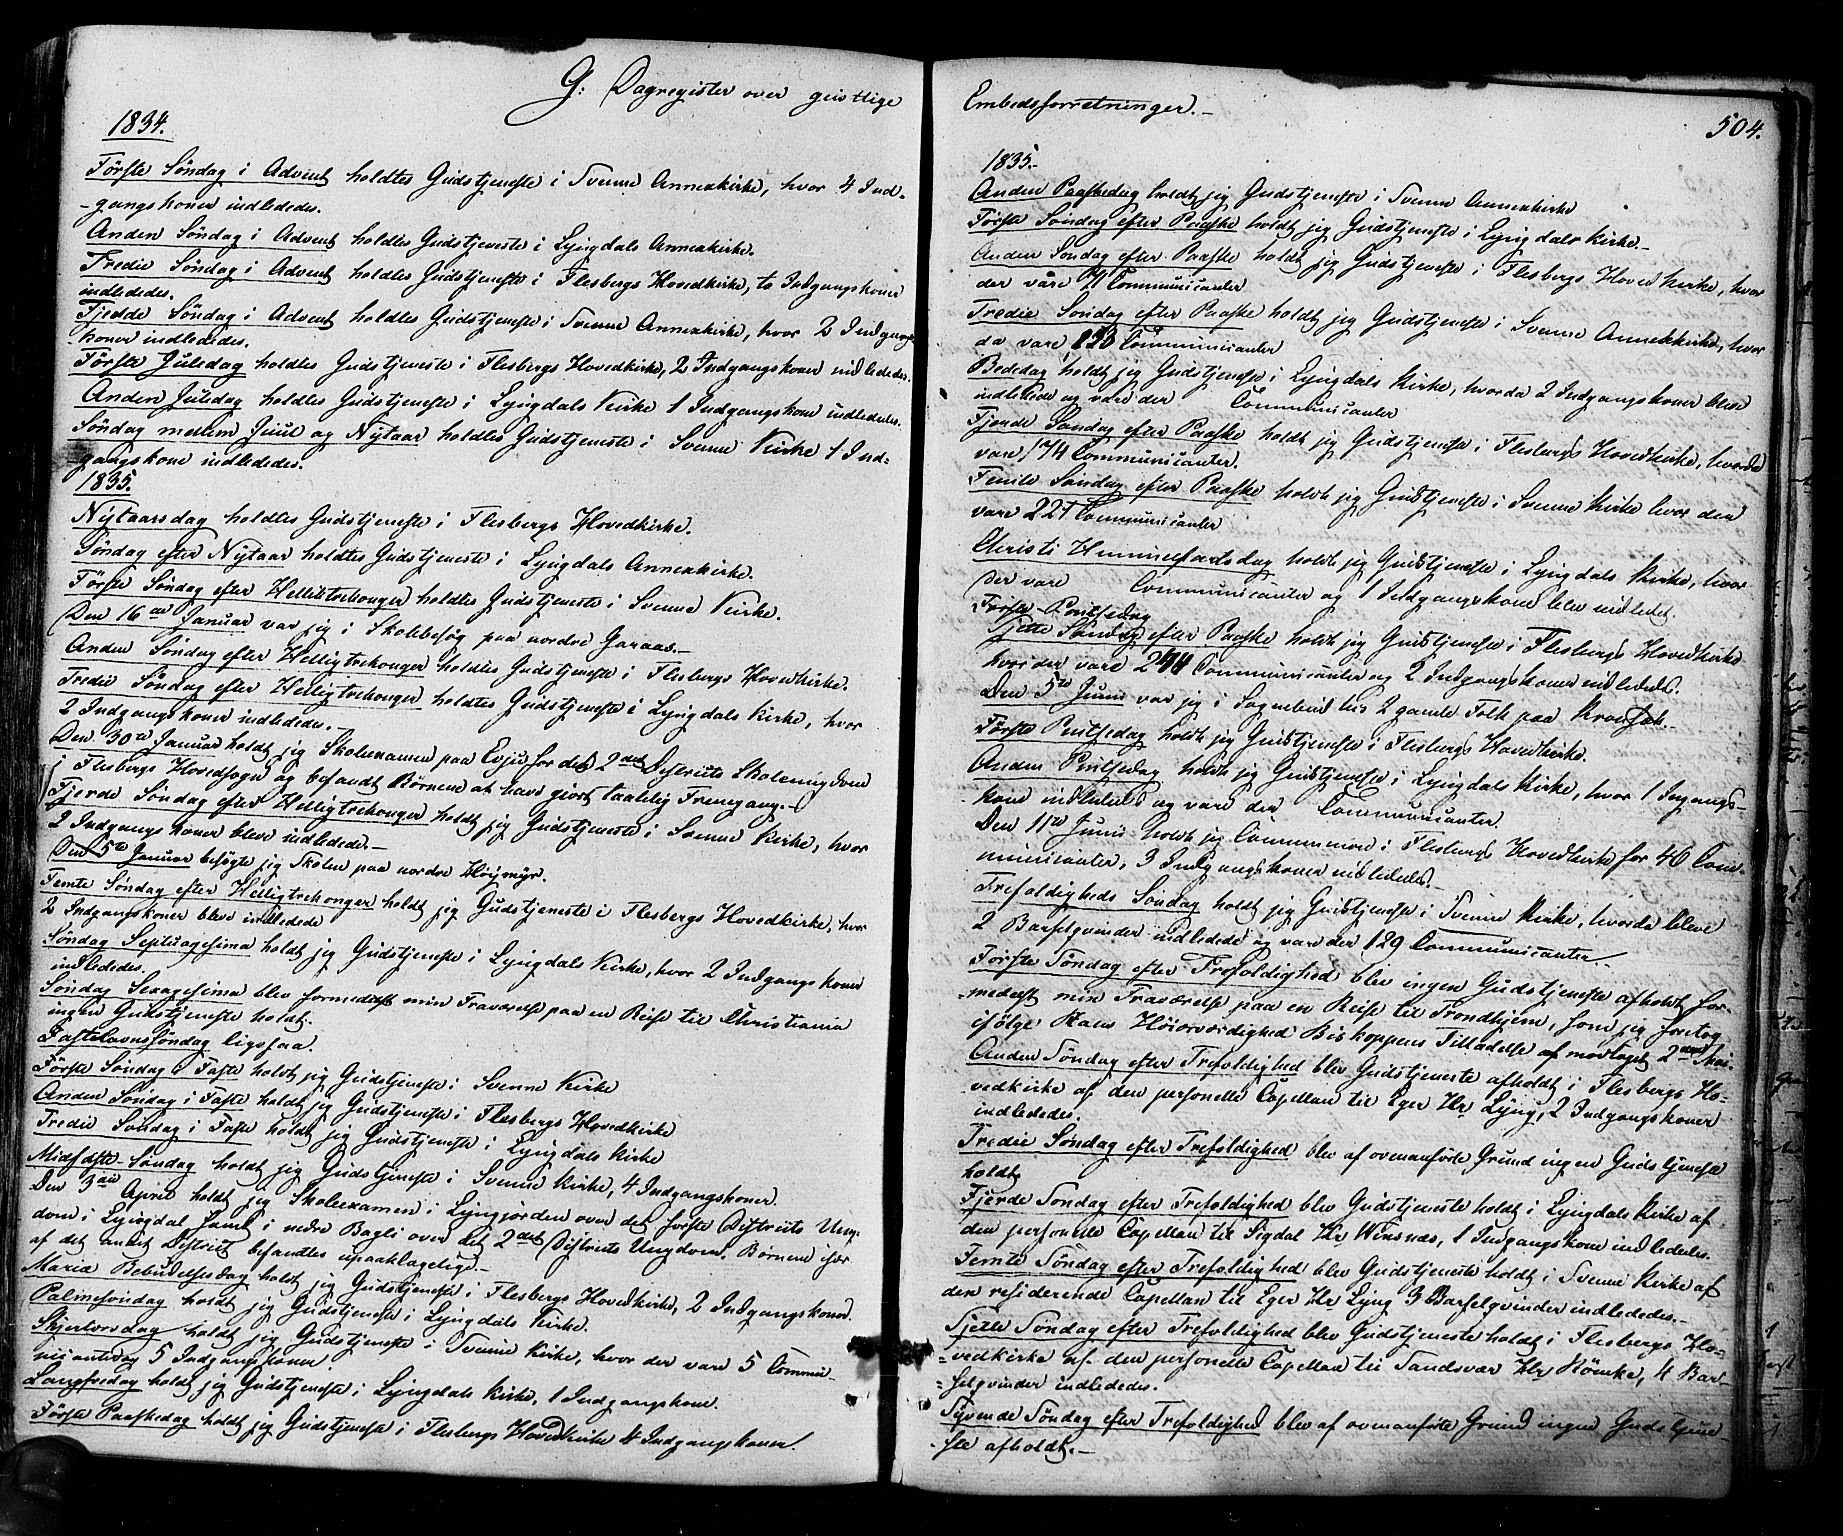 G: Dagregister over geistlige
1834.
Første Søndag i Advent holdtes Gudstjeneste i Svenne Annexkirke, hvor 4 Ind-
-gangskoner indlededes.
Anden Søndag i Advent holdtes Gudstjeneste i Lyngdals Annexkirke.
Tredie Søndag i Advent holdtes Gudstjeneste i Flesbergs Hovedkirke, to Indgangskoner
indlededes.
Fjerde Søndag i Advent holdtes Gudstjeneste i Svenne Annexkirke, hvor 2 Indgangs
koner indlededes.
Første Juledag holdtes Gudstjeneste i Flesbergs Hovedkirke, 2 Indgangskoner indlededes.
Anden Juledag holdtes Gudstjeneste i Lyngdals Kirke 1 Indgangskone indlededes.
Søndag mellem Juul og Nytaar holdtes Gudstjeneste i Svenne Kirke 1 Ind=
gangskone indlededes.
1835.
Nytaarsdag holdtes Gudstjeneste i Flesbergs Hovedkirke.
Søndag efter Nytaar holdtes Gudstjeneste i Lyngdals Annexkirke.
Første Søndag efter Helligtrekonger holdtes Gudstjeneste i Svenne Kirke.
Den 16de Januar var jeg i Skolebesøg paa nordre Garaas.-
Anden Søndag efter Helligtrekonger holdtes Gudstjeneste i Flesbergs Hovedkirke.
Tredie Søndag efter Helligtrekonger holdtes Gudstjeneste i Lyngdals Kirke, hvor
2 Indgangskoner indlededes.-
Den 30te Januar holdt jeg Skoleexamen paa Evju for det 2det Districts Skoleungdom
i Flesbergs Hovedsogn og befandt Børnene at have gjort taalelig Fremgang.-
Fjerde Søndag efter Helligtrekonger holdt jeg Gudstjeneste i Svenne Kirke, hvor
2 Indgangskoner bleve indledede.-
Den 5te Januar besøgte jeg Skolen paa nordre Højmyr.
Femte Søndag efter Helligtrekonger holdt jeg Gudstjeneste i Flesbergs Hovedkirke, hvor
2 Indgangskoner bleve indledede
Søndag Septuagesima holdt jeg Gudstjeneste i Lyngdals Kirke, hvor 2 Indgangskoner
indlededes.
Søndag Sexagesima blev formedelst min Fraværelse paa en Reise til Christiania
ingen Gudstjeneste holdt.
Fastelavnssøndag ligesaa.
Første Søndag i Faste holdt jeg Gudstjeneste i Svenne Kirke
Anden Søndag i Faste holdt jeg Gudstjeneste i Flesbergs Hovedkirke
Tredie Søndag i Faste holdt jeg Gudstjeneste i Lyngdals Kirke
Midfaste-Søndag holdt jeg Gudstjeneste i Svenne Kirke, 4 Indgangskoner.
Den 3die April holdt jeg Skoleexamen i Lyngjorden over det første Districts Ung-
dom i Lyngdal samt i nedre Bagli over det 2det Districts Ungdom. Børnene
af det andet District befandtes upaaklagelige.-
Mariæ Bebudelsesdag holdt jeg Gudstjeneste i Flesbergs Hovedkirke, 2 Indgangskoner.
Palmesøndag holdt jeg Gudstjeneste i Lyngdals Kirke.
Skjertorsdag holdt jeg Gudstjeneste i Svenne Kirke, hvor der vare 5 Commu-
nicanter og 5 Indgangskoner.
Langfredag holdt jeg Gudstjeneste i Lyngdals Kirke, 1 Indgangskone.
Første Paaskedag holdt jeg Gudstjeneste i Flesbergs Hovedkirke 4 Indgangskoner.
Embedsforretninger.-
504.
1835.-
Anden Paaskedag holdt jeg Gudstjeneste i Svenne Annexkirke
Første Søndag efter Paaske holdt jeg Gudstjeneste i Lyngdals Kirke.-
Anden Søndag efter Paaske holdt jeg Gudstjeneste i Flesbergs Hovedkirke, hvor
der vare 71 Communicanter
Tredie Søndag efter Paaske holdt jeg Gudstjeneste i Svenne Annexkirke, hvor
da vare Communicanter
Bededag holdt jeg Gudstjeneste i Lyngdals Kirke, hvorda 2 Indgangskoner bleve
indledede og vare der Communicanter
Fjerde Søndag efter Paaske holdt jeg Gudstjeneste i Flesbergs Hovedkirke, hvorda
vare 174 Communicanter.
Femte Søndag efter Paaske holdt jeg Gudstjeneste i Svenne Kirke hvor der
vare 227 Communicanter
Christi Himmelfartsdag holdt jeg Gudstjeneste i Lyngdals Kirke, hvor
der vare Communicanter og 1 Indgangskone blev indledet.
Første Pintsedag
Sjette Søndag efter Paaske holdt jeg Gudstjeneste i Flesbergs Hovedkirke
hvor der vare Communicanter og 2 Indgangskoner indlededs.
Den 5te Juni var jeg i Sognebud hos 2 gamle Folk paa
Første Pintsedag holdt jeg Gudstjeneste i Flesbergs Hovedkirke.
Anden Pintsedag holdt jeg Gudstjeneste i Lyngdals Kirke, hvor 1 Ingangs-
kone indlededs og vare der Communicanter.
Den 11te Juni holdt jeg Communion i Flesbergs Hovedkirke for 46 Com-
municanter, 3 Indgangskoner indlededs.-
Trefoldigheds Søndag holdt jeg Gudstjeneste i Svenne Kirke, hvorda bleve
2 Barselqvinder indledede og vare der 129 Communicanter.-
Første Søndag efter Trefoldighed blev ingen Gudstjeneste afholdt for-
=medelst min Fraværelse paa en Reise til Trondhjem, som jeg foretog
ifølge Hans Høiærværdighed Biskoppens Tilladelse af modtaget 2den
Anden Søndag efter Trefoldighed blev Gudstjeneste afholdt i Flesbergs Ho-
vedkirke af den personelle Capellan til Eger Hr Lyng, 2 Indgangskoner
indlededes.
Tredie Søndag efter Trefoldighed blev af ovenanførte Grund ingen Gudstjeneste
holdt
Fjerde Søndag efter Trefoldighed blev Gudstjeneste holdt i Lyngdals Kirke af
den personelle Capellan til Sigdal Hr Winsnæs, 1 Indgangskone indlededes.
Femte Søndag efter Trefoldighed blev Gudstjeneste holdt i Svenne Kirke af
den residerende Capellan til Eger Hr Lyng 3 Barselqvinder indlededes.-
Sjette Søndag efter Trefoldighed blev Gudstjeneste holdt i Flesbergs Ho-
=vedkirke af den personelle Capellan til Sandsvær Hr Hömke, 4 Bar-
=selqvinder indlededes.
Syvende Søndag efter Trefoldighed blev af ovenanførte Grund ingen Gudstjene-
-ste afholdt.-